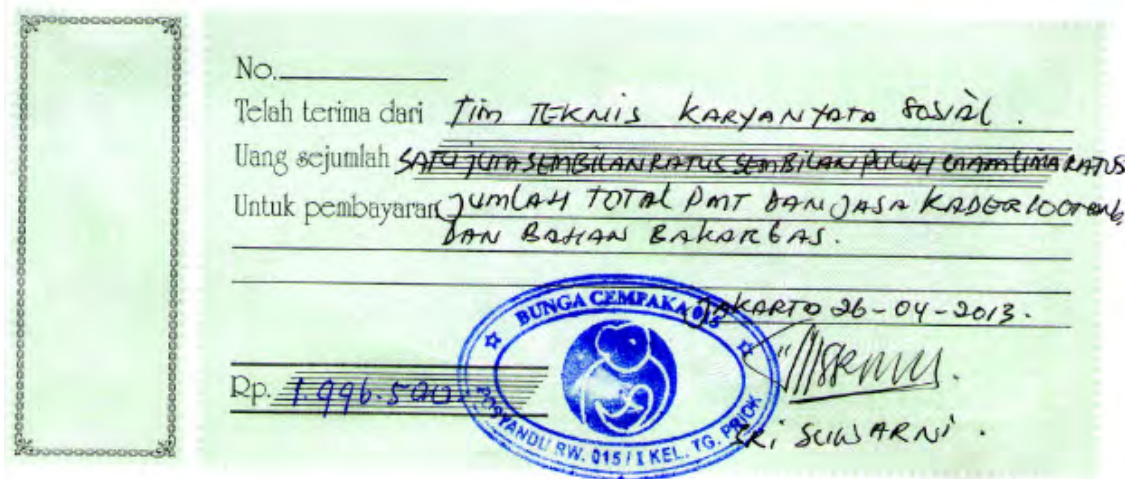 No.
Telah terima dari Tim TEKNIS KARYANYATA SOSIAL.
Uang sejumlah SATU JUTA SEMBILAN RATUS SEMBILAN PULUH ENAM LIMA RATUS
Untuk pembayaran JUMLAH TOTAL PMT DAN JASA KADER
DAN BAHAN BAKAR GAS.
BUNGA CEMPAKA 015
JAKARTA 26-04-2013.
Rp. 1.996.500
POSYANDU RW. 015 / I KEL. TG. PRIOK
SRI SUWARNI.